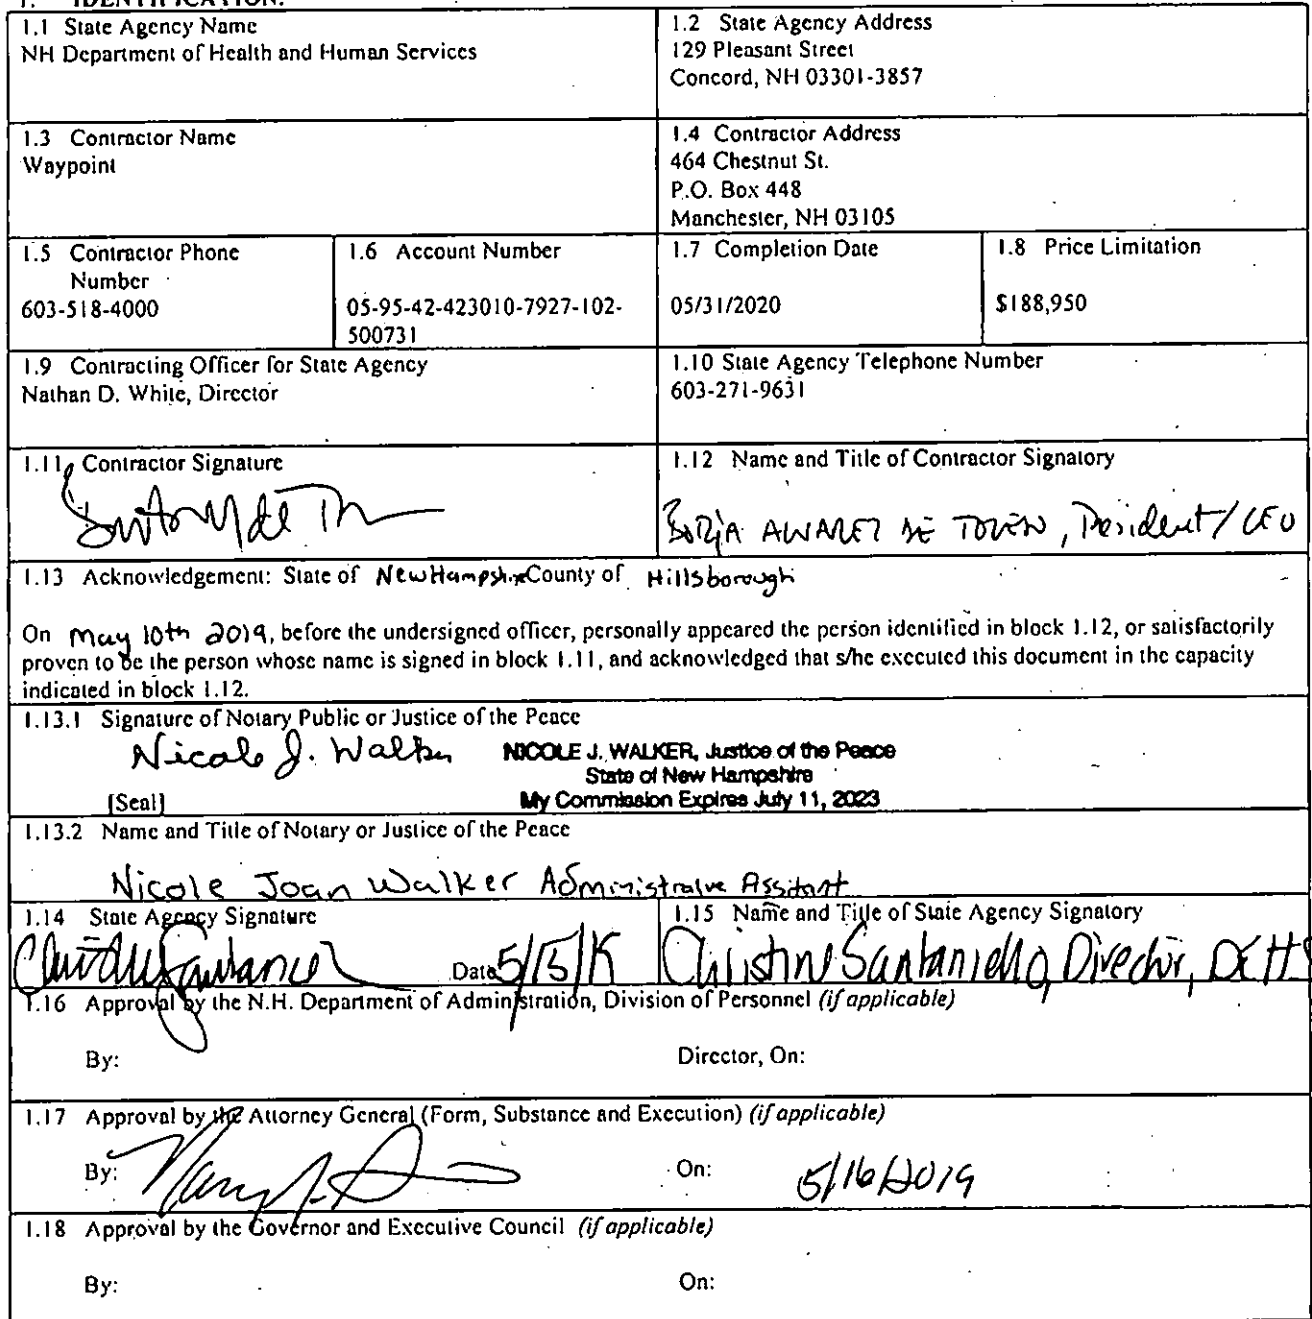 1. IDENTIFICATION.
1.1 State Agency Name
NH Department of Health and Human Services
1.2 State Agency Address
129 Pleasant Street
Concord, NH 03301-3857
1.3 Contractor Name
Waypoint
1.4 Contractor Address
464 Chestnut St.
P.O. Box 448
Manchester, NH 03105
1.5 Contractor Phone
Number
603-518-4000
1.6 Account Number
05-95-42-423010-7927-102-
500731
1.7 Completion Date
05/31/2020
1.8 Price Limitation
$188,950
1.9 Contracting Officer for State Agency
Nathan D. White, Director
1.10 State Agency Telephone Number
603-271-9631
1.11 Contractor Signature
1.12 Name and Title of Contractor Signatory
BORJA ALVAREZ DE TOLEDO, President/CEO
1.13 Acknowledgement: State of New Hampshire County of Hillsborough
On May 10th 2019, before the undersigned officer, personally appeared the person identified in block 1.12, or satisfactorily
proven to be the person whose name is signed in block 1.11, and acknowledged that s/he executed this document in the capacity
indicated in block 1.12.
1.13.1 Signature of Notary Public or Justice of the Peace
Nicole J. Walker
NICOLE J. WALKER, Justice of the Peace
State of New Hampshire
[Seal]
My Commission Expires July 11, 2023
1.13.2 Name and Title of Notary or Justice of the Peace
Nicole Joan Walker Administrative Assitant
1.14 State Agency Signature
Date
1.15 Name and Title of State Agency Signatory
Christine Santaniello, Director, DEHS
1.16 Approval by the N.H. Department of Administration, Division of Personnel (if applicable)
By:
Director, On:
1.17 Approval by the Attorney General (Form, Substance and Execution) (if applicable)
By:
On: 5/16/2019
1.18 Approval by the Governor and Executive Council (if applicable)
By:
On: